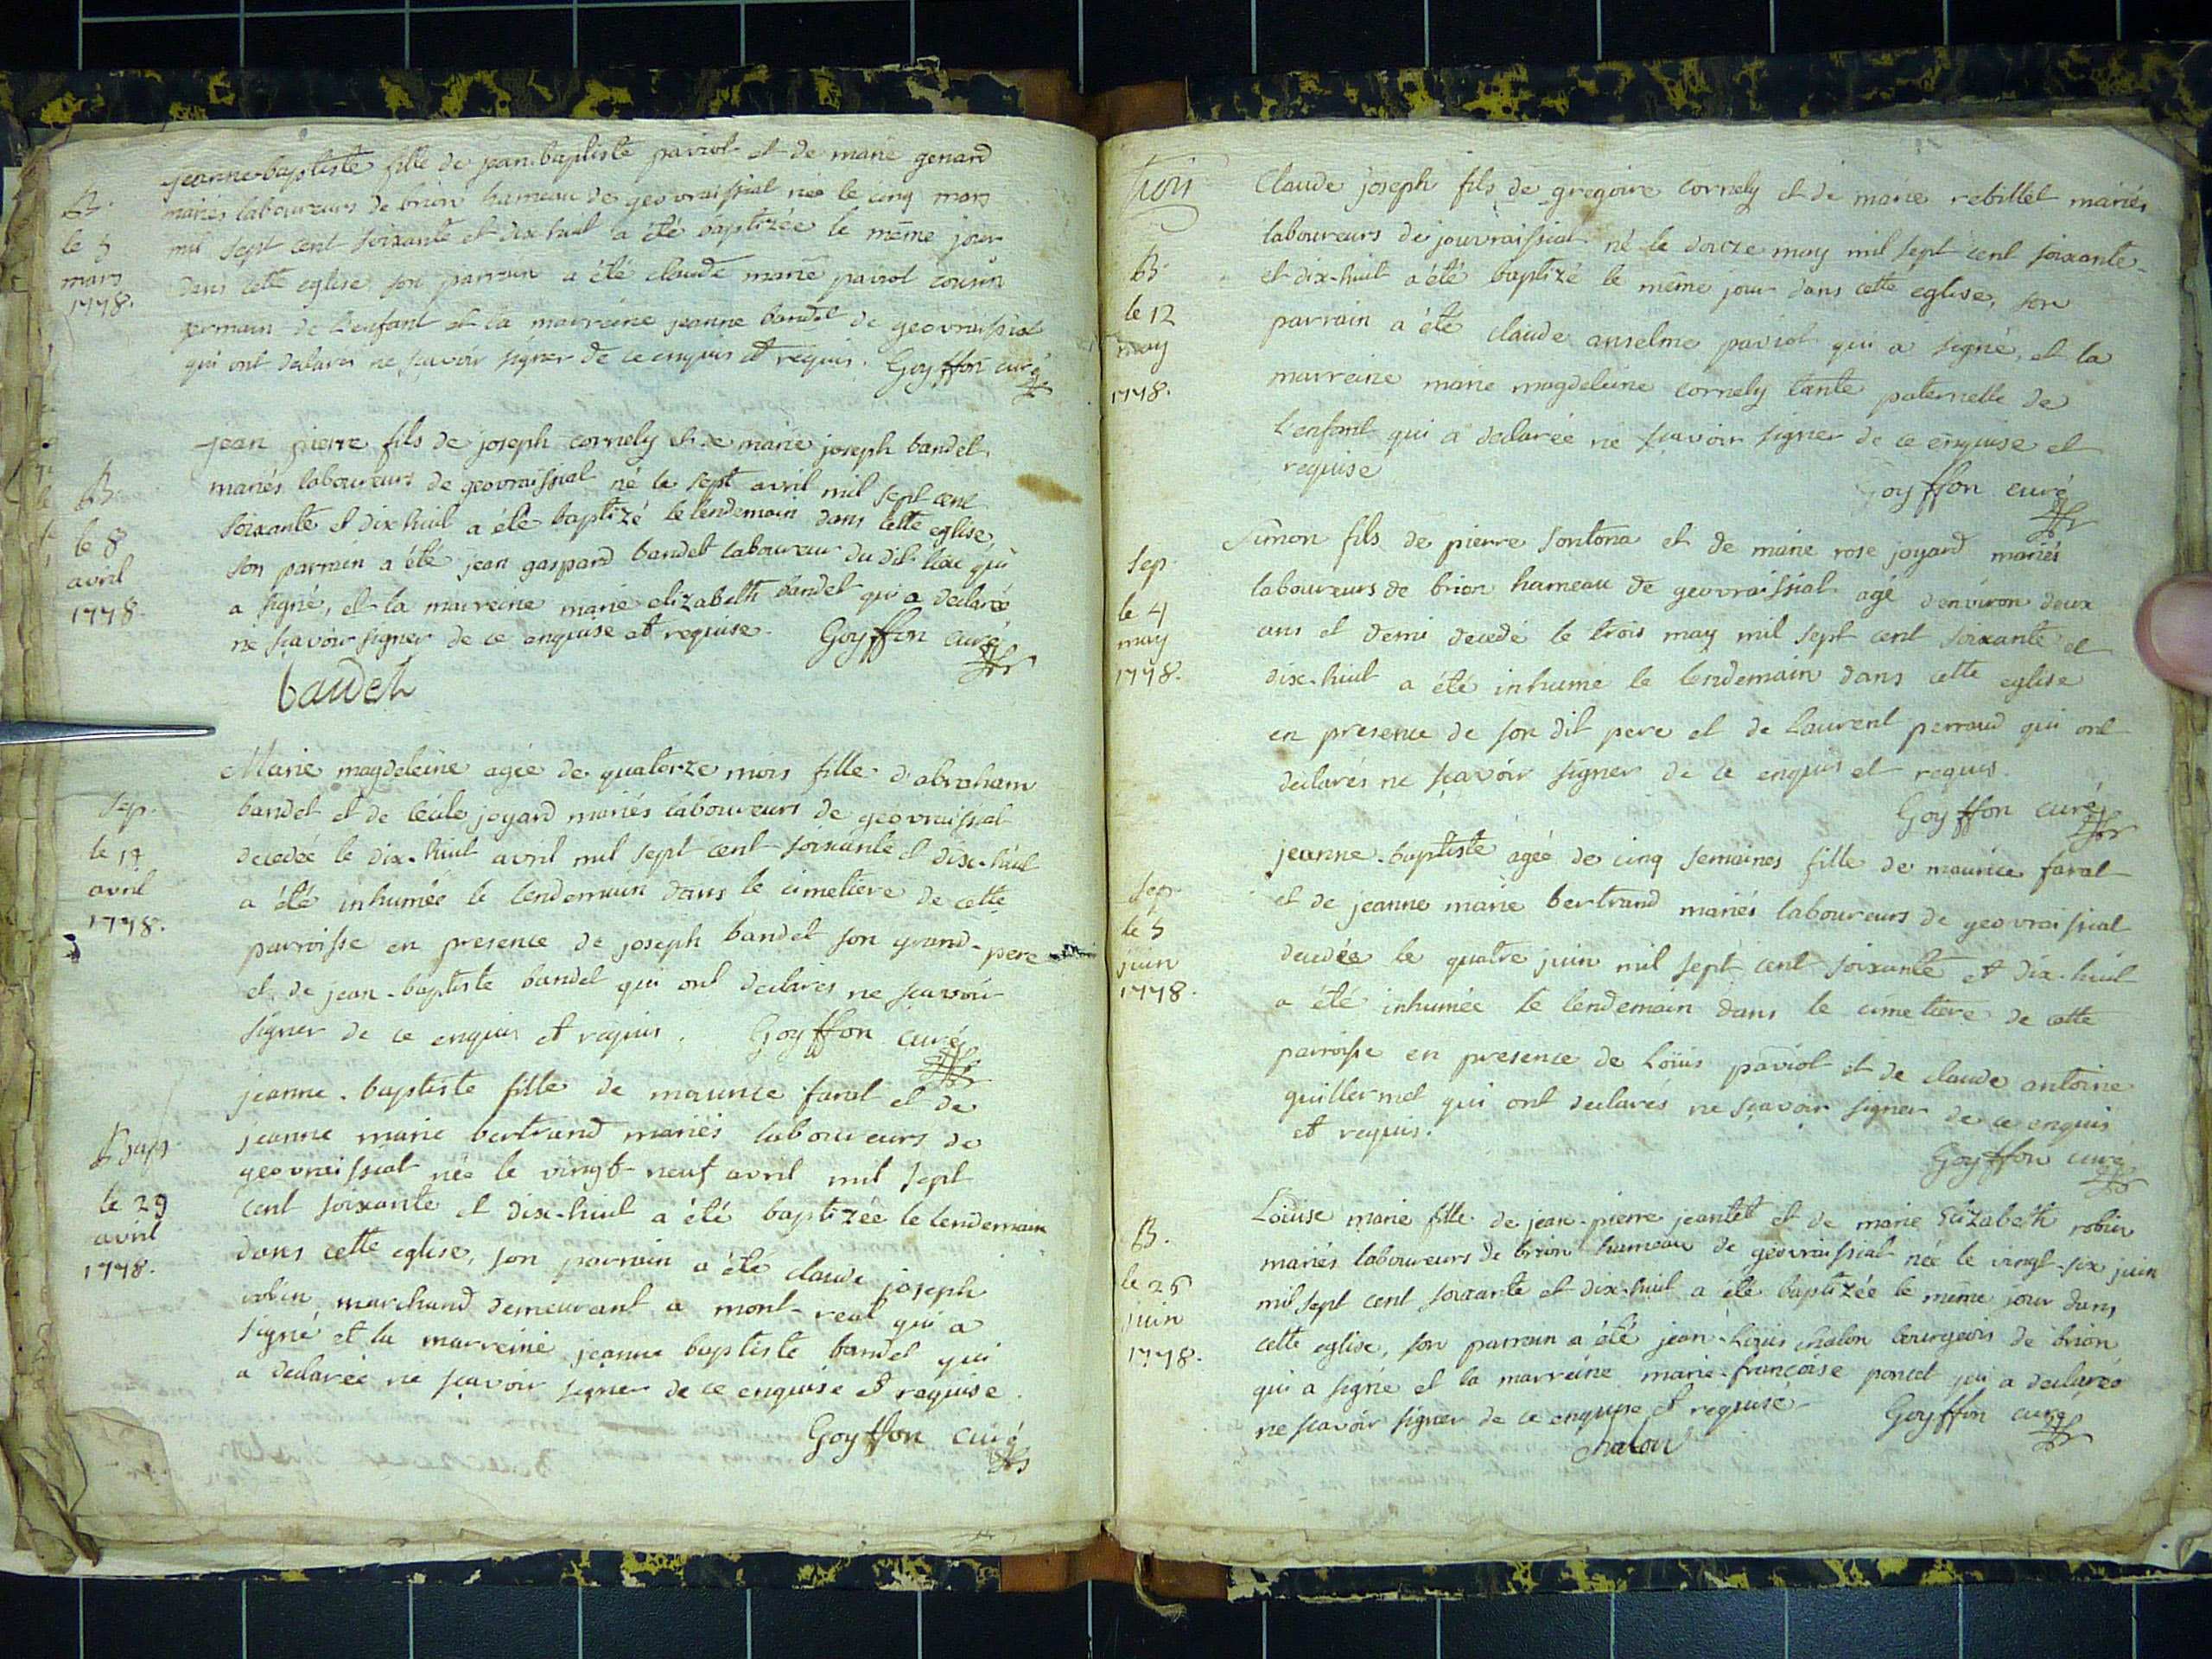 B.
le 5
mars
1778.
jeanne-baptiste fille de jean-baptiste paviot et de marie genard
mariés laboureurs de brion hameau de geovraissiat née le cinq mars
mil sept cent soixante et dix huit a été baptizée le même jour
dans cette eglise son parrain a été claude marie paviot cousin
germain de l'enfant et la marreine jeanne bandet de geovraissiat
qui ont declarés ne sçavoir signer de ce enquis et requis. Goyffon curé
B
le 8
avril
1778.
jean pierre fils de joseph cornely et de marie joseph bandet
mariés laboureurs de geovraissiat né le sept avril mil sept cent
soixante et dix huit a été baptizé le lendemain dans cette eglise,
son parrain a été jean gaspard bandet laboureur du dit lieu qui
a signé, et la marreine marie elizabeth bandet qui a declarée
ne sçavoir signer de ce enquise et requise. Goyffon curé
bandet
Sep.
le 19
avril
1778.
Marie magdeleine agée de quatorze mois fille d'abraham
bandet et de cécile joyard mariés laboureurs de geovraissiat
decedée le dix-huit avril mil sept cent soixante et dix-huit
a été inhumée le lendemain dans le cimetiere de cette
parroisse en presence de joseph bandet son grand-pere
et de jean-baptiste bandet qui ont declarés ne sçavoir
signer de ce enquis et requis. Goyffon curé
Bap.
le 29
avril
1778.
jeanne-baptiste fille de maurice farat et de
jeanne marie bertrand mariés laboureurs de
geovraissiat née le vingt-neuf avril mil sept
cent soixante et dix-huit a été baptizée le lendemain
dans cette eglise, son parrain a été claude joseph
robin marchand demeurant a mont-real qui a
signé et la marreine jeanne baptiste bandet qui
a declarée ne sçavoir signer de ce enquise et requise.
Goyffon curé
trois
B.
le 12
may
1778.
Claude joseph fils de gregoire cornely et de marie rebillet mariés
laboureurs de jouvraissiat né le douze may mil sept cent soixante
et dix-huit a été baptizé le même jour dans cette eglise, son
parrain a été claude anselme paviot qui a signé, et la
marreine marie magdeleine cornely tante paternelle de
l'enfant qui a declarée ne sçavoir signer de ce enquise et
requise
Goyffon curé
Sep.
le 4
may
1778.
Simon fils de pierre sontona et de marie rose joyard mariés
laboureurs de brion hameau de geovraissiat agé d'environ deux
ans et demi decedé le trois may mil sept cent soixante et
dix-huit a été inhumé le lendemain dans cette eglise
en presence de son dit pere et de Laurent perraud qui ont
declarés ne sçavoir signer de ce enquis et requis.
Goyffon curé
Sep.
le 5
juin
1778.
jeanne-baptiste agée de cinq semaines fille de maurice farat
et de jeanne marie bertrand mariés laboureurs de geovraissiat
decedée le quatre juin mil sept cent soixante et dix-huit
a été inhumée le lendemain dans le cimetiere de cette
parroisse en presence de Loüis paviot et de claude antoine
guillermet qui ont declarés ne sçavoir signer de ce enquis
et requis.
Goyffon curé
B.
le 26
juin
1778.
Loüise marie fille de jean-pierre jeantet et de marie Elizabeth robin
mariés laboureurs de brion hameau de geovraissiat née le vingt-six juin
mil sept cent soixante et dix-huit a été baptizée le même jour dans
cette eglise, son parrain a été jean-Loüis chalon bourgeois de brion
qui a signé et la marreine marie-françoise poncet qui a declarée
ne sçavoir signer de ce enquise et requise Goyffon curé
chalon